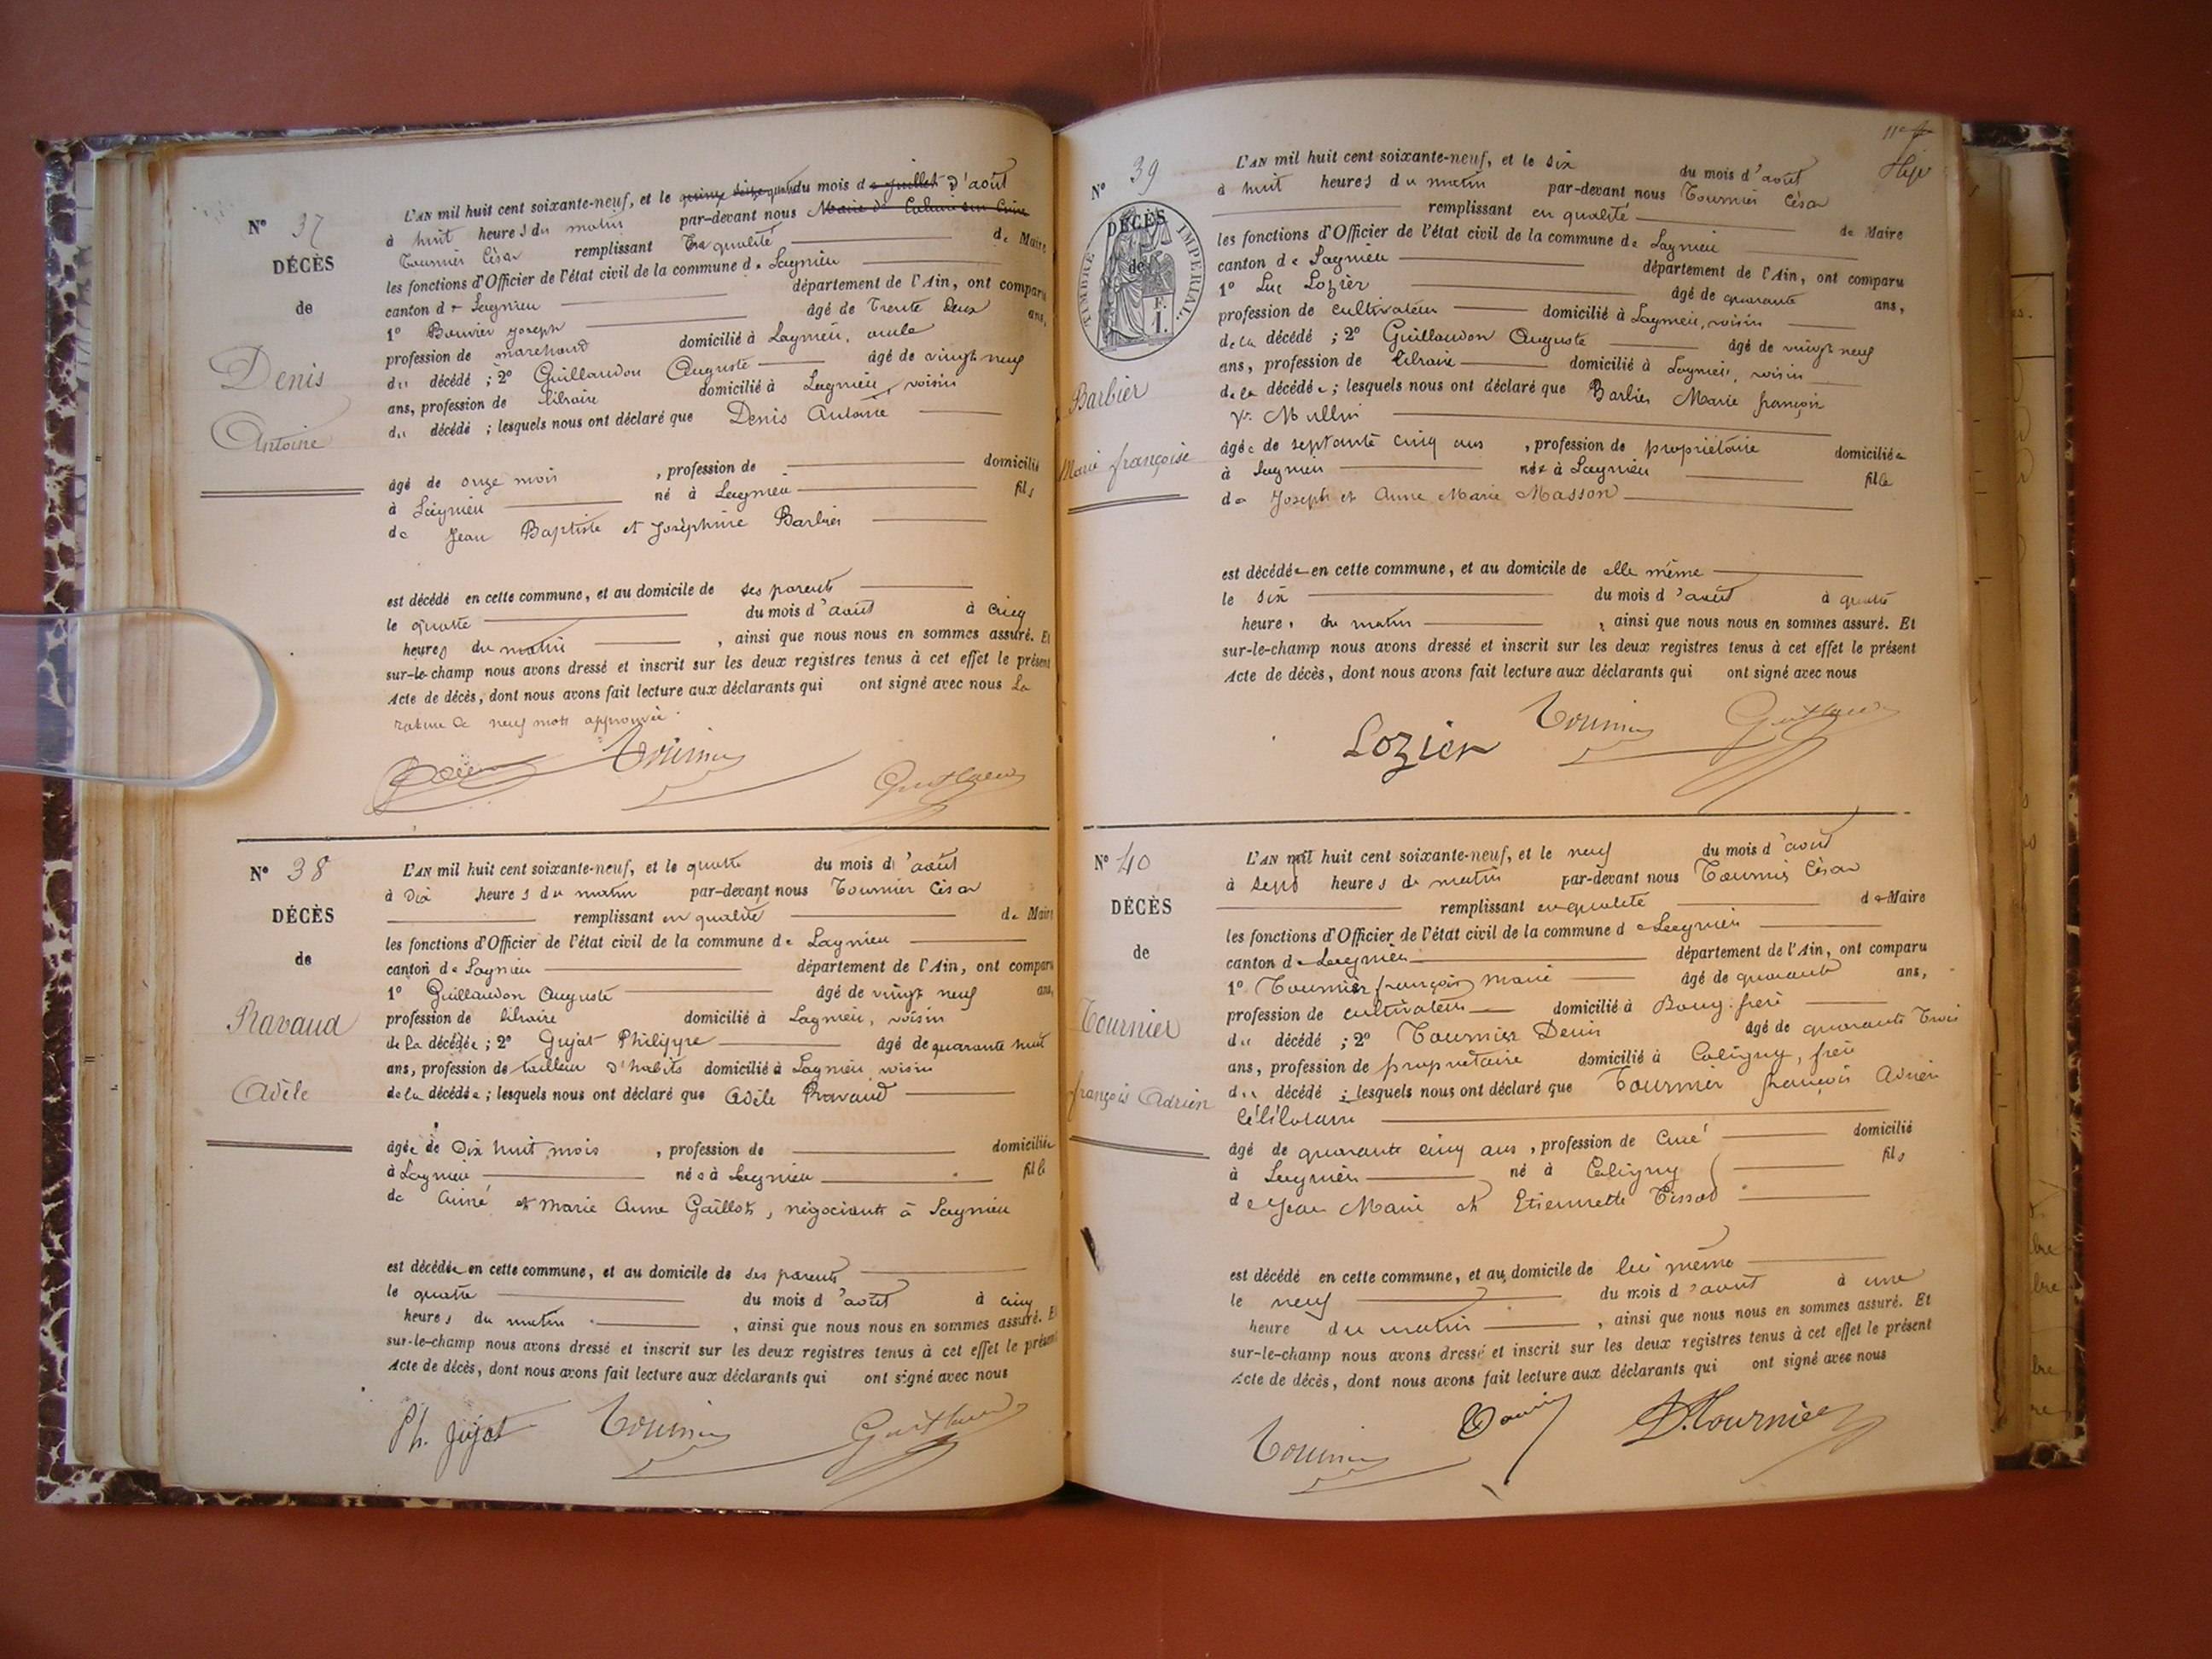 N° 37
DÉCÈS
de
Denis
Antoine
L'AN mil huit cent soixante-neuf, et le quinze seize quatre du mois de juillet d'août
à huit heures du matin par-devant nous
Tournier César remplissant en qualité de Maire
les fonctions d'Officier de l'état civil de la commune de Lagnieu
canton de Lagnieu département de l'Ain, ont comparu
1° Bouvier Joseph âgé de trente deux ans,
profession de marchand domicilié à Lagnieu, oncle
du décédé ; 2° Guillaudon Auguste âgé de vingt neuf
ans, profession de libraire domicilié à Lagnieu, voisin
du décédé ; lesquels nous ont déclaré que Denis Antoine
âgé de onze mois , profession de domicilié
à Lagnieu né à Lagnieu fils
de Jean Baptiste et Joséphine Barbier
est décédé en cette commune, et au domicile de ses parents
le quatre du mois d'août à cinq
heures du matin , ainsi que nous nous en sommes assuré. Et
sur-le-champ nous avons dressé et inscrit sur les deux registres tenus à cet effet le présent
Acte de décès, dont nous avons fait lecture aux déclarants qui ont signé avec nous La
rature de neuf mots approuvée
Tournier
N° 38
DÉCÈS
de
Ravaud
Adèle
L'AN mil huit cent soixante-neuf, et le quatre du mois d'août
à dix heures du matin par-devant nous Tournier César
remplissant en qualité de Maire
les fonctions d'Officier de l'état civil de la commune de Lagnieu
canton de Lagnieu département de l'Ain, ont comparu
1° Guillaudon Auguste âgé de vingt neuf ans,
profession de libraire domicilié à Lagnieu, voisin
de la décédée ; 2° Gujat Philippe âgé de quarante huit
ans, profession de tailleur d'habits domicilié à Lagnieu voisin
de la décédée ; lesquels nous ont déclaré que Adèle Ravaud
âgée de dix huit mois , profession de domiciliée
à Lagnieu née à Lagnieu fille
de Aimé et Marie Anne Gaillot, négociants à Lagnieu
est décédée en cette commune, et au domicile de ses parents
le quatre du mois d'août à cinq
heures du matin , ainsi que nous nous en sommes assuré. Et
sur-le-champ nous avons dressé et inscrit sur les deux registres tenus à cet effet le présent
Acte de décès, dont nous avons fait lecture aux déclarants qui ont signé avec nous
Ph. Gujat Tournier
N° 39
DÉCÈS
de
TIMBRE IMPÉRIAL
F.
1.
Barbier
Marie françoise
L'AN mil huit cent soixante-neuf, et le six du mois d'août
à huit heures du matin par-devant nous Tournier César
remplissant en qualité de Maire
les fonctions d'Officier de l'état civil de la commune de Lagnieu
canton de Lagnieu département de l'Ain, ont comparu
1° Luc Lozier âgé de quarante ans,
profession de cultivateur domicilié à Lagnieu, voisin
de la décédé ; 2° Guillaudon Auguste âgé de vingt neuf
ans, profession de libraire domicilié à Lagnieu, voisin
de la décédée ; lesquels nous ont déclaré que Barbier Marie françoise
âgée de septante cinq ans , profession de propriétaire domiciliée
à Lagnieu née à Lagnieu fille
de Joseph et Anne Marie Masson
est décédée en cette commune, et au domicile de elle même
le six du mois d'août à quatre
heures du matin , ainsi que nous nous en sommes assuré. Et
sur-le-champ nous avons dressé et inscrit sur les deux registres tenus à cet effet le présent
Acte de décès, dont nous avons fait lecture aux déclarants qui ont signé avec nous
Lozier Tournier
N° 40
DÉCÈS
de
Tournier
françois Adrien
L'AN mil huit cent soixante-neuf, et le neuf du mois d'août
à sept heures du matin par-devant nous Tournier César
remplissant en qualité de Maire
les fonctions d'Officier de l'état civil de la commune de Lagnieu
canton de Lagnieu département de l'Ain, ont comparu
1° Tournier françois Marie âgé de quarante ans,
profession de cultivateur domicilié à Bourg, frère
du décédé ; 2° Tournier Denis âgé de quarante trois
ans, profession de propriétaire domicilié à Coligny, frère
du décédé ; lesquels nous ont déclaré que Tournier françois Adrien
célibataire
âgé de quarante cinq ans , profession de Curé domicilié
à Lagnieu né à Coligny fils
de Jean Marie et Etiennette Tissot
est décédé en cette commune, et au domicile de lui même
le neuf du mois d'août à une
heure du matin , ainsi que nous nous en sommes assuré. Et
sur-le-champ nous avons dressé et inscrit sur les deux registres tenus à cet effet le présent
Acte de décès, dont nous avons fait lecture aux déclarants qui ont signé avec nous
Tournier D. Tournier